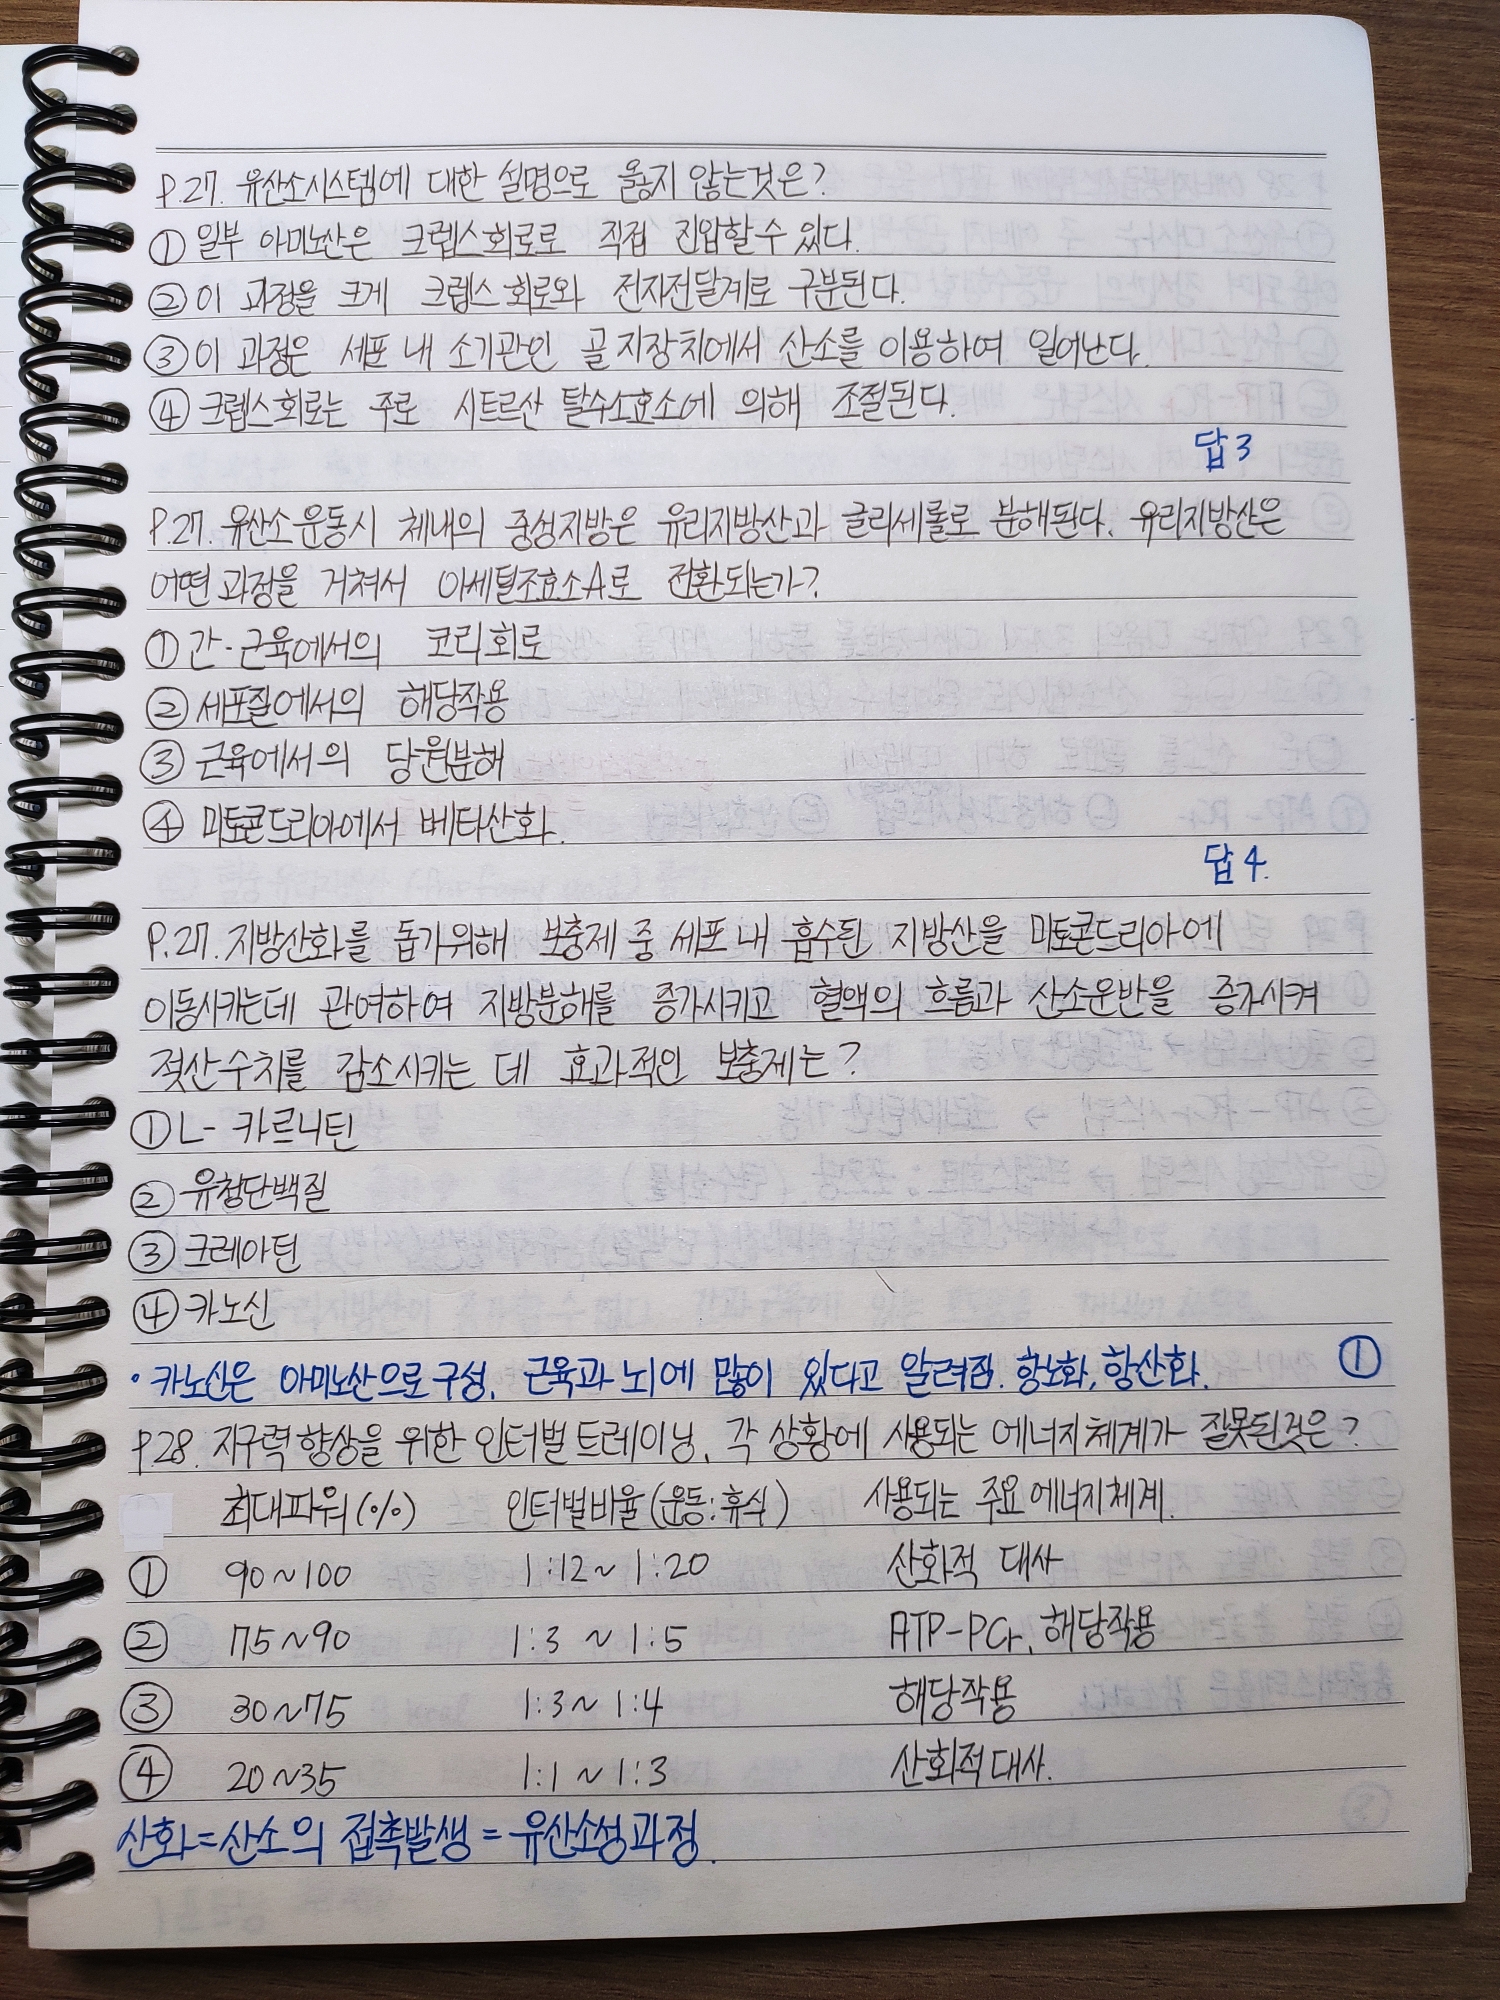 P.27. 유산소시스템에 대한 설명으로 옳지 않는것은?
① 일부 아미노산은 크렙스회로로 직접 진입할 수 있다.
② 이 과정을 크게 크렙스 회로와 전자전달계로 구분된다.
③ 이 과정은 세포 내 소기관인 골지장치에서 산소를 이용하여 일어난다.
④ 크렙스회로는 주로 시트르산 탈수소효소에 의해 조절된다.
답 3
P.27. 유산소운동시 체내의 중성지방은 유리지방산과 글리세롤로 분해된다. 유리지방산은
어떤 과정을 거쳐서 아세틸조효소A로 전환되는가?
① 간·근육에서의 코리회로
② 세포질에서의 해당작용
③ 근육에서의 당원분해
④ 미토콘드리아에서 베타산화.
답 4.
P.27. 지방산화를 돕기위해 보충제 중 세포 내 흡수된 지방산을 미토콘드리아에
이동시키는데 관여하여 지방분해를 증가시키고 혈액의 흐름과 산소운반을 증가시켜
젖산수치를 감소시키는 데 효과적인 보충제는?
① L- 카르니틴
② 유청단백질
③ 크레아틴
④ 카노신
· 카노신은 아미노산으로 구성. 근육과 뇌에 많이 있다고 알려짐. 항노화, 항산화. ①
P.28. 지구력 향상을 위한 인터벌 트레이닝. 각 상황에 사용되는 에너지체계가 잘못된것은?
최대파워(%) 인터벌비율(운동:휴식) 사용되는 주요 에너지체계.
① 90~100 1:12~1:20 산화적 대사
② 75~90 1:3 ~ 1:5 ATP-PCr, 해당작용
③ 30~75 1:3~1:4 해당작용
④ 20~35 1:1~1:3 산화적대사.
산화=산소의 접촉발생=유산소성과정.